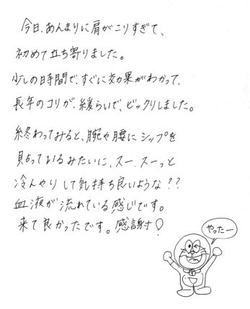 今日、あんまりに肩がこりすぎて、
初めて立ち寄りました。
少しの時間で、すぐに効果がわかって、
長年のコリが、緩らいで、ビックリしました。
終わってみると、腕や腰にシップを
貼っているみたいに、スー、スーっと
冷んやりして気持ち良いような??
血液が流れている感じです。
来て良かったです。感謝!
やったー